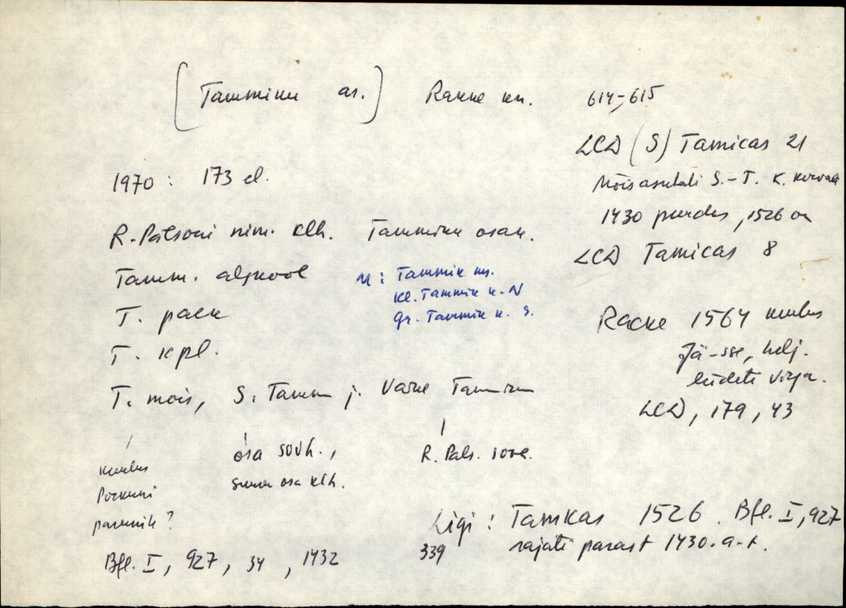 [Tammiku as.] Rakke kn. 614-615
LCD (S) Tamicas 21
Mõisasulati S.-T. K. kõrvale
1430 paiku, 1526 on
LCD Tamicas 8
1970: 173 el.
R. Pälsoni nim. klh. Tammiku osak.
Tamm. algkool
T. park
T. kpl.
T. mõis, S. Tamm j. Väike Tammiku
M: Tammik ms.
Kl. Tammik k. N
Gr. Tammik k. S.
Racke 1564 kuulus
Jä-sse, helj.
liideti Virja.
LCD, 179, 43
kuulus
Porkuni
paronile?
osa sovh.,
suur osa klh.
R. Päls. sovh.
Bfl. I, 927, 34, 1432
Ligi: Tamkas 1526. Bfl. I, 927
339 rajati pärast 1430.a-t.